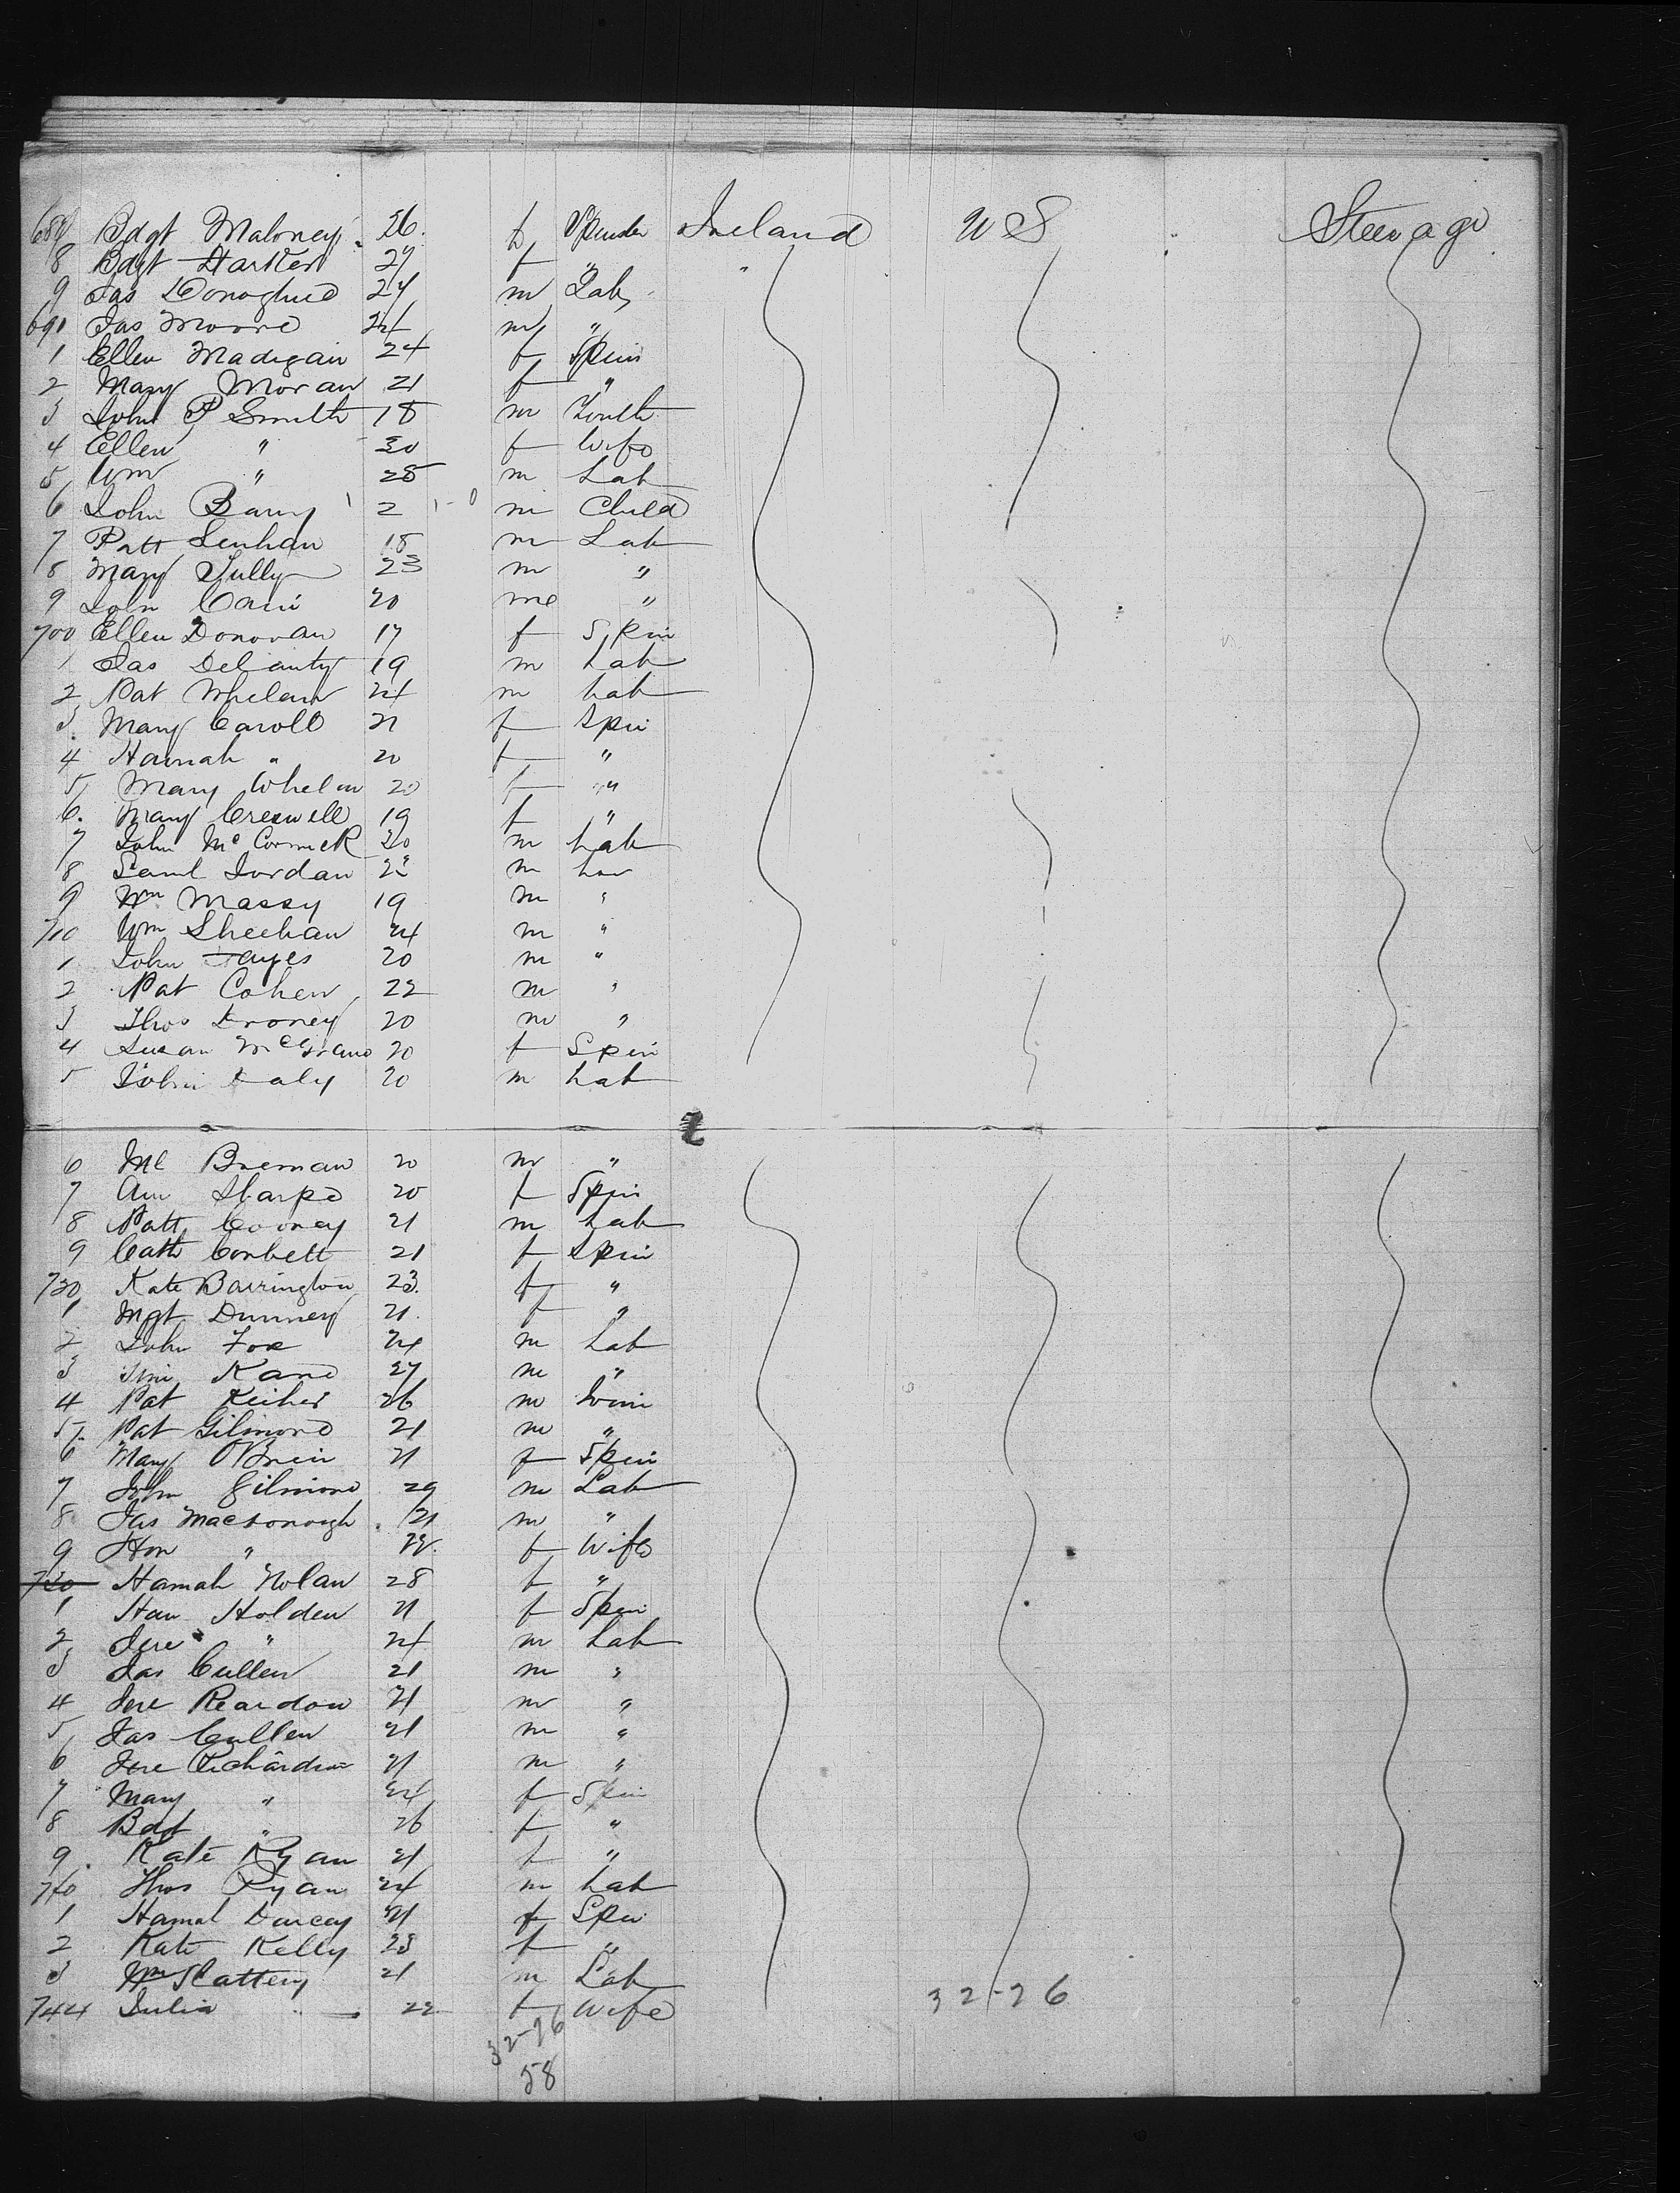 687 Bdgt Maloney 26 f Spinster Ireland U S Steerage
8 Bdgt Harker 27 f "
9 Jas Donoghue 24 m Lab
690 Jas Moore 24 m "
1 Ellen Madigan 24 f Spin
2 Mary Moran 21 f "
3 John P Smith 18 m Youth
4 Ellen " 30 f Wife
5 Wm " 28 m Lab
6 John Barry 2 m Child
7 Patt Lenhan 18 m Lab
8 Mary Tully 23 m "
9 John Cain 20 m "
700 Ellen Donovan 17 f Spin
1 Jas Delanty 19 m Lab
2 Pat Whelan 24 m Lab
3 Mary Caroll 21 f Spin
4 Hannah " 20 f "
5 Mary Whelan 20 f "
6 Mary Creswell 19 f "
7 John McCormick 20 m Lab
8 Saml Jordan 22 m Lab
9 Wm Massy 19 m "
710 Wm Sheehan 24 m "
1 John Hayes 20 m "
2 Pat Cohen 22 m "
3 Thos Droney 20 m "
4 Susan 20 f Spin
5 John Daly 20 m Lab
6 Ml Brernan 20 m "
7 Ann Sharpe 20 f Spin
8 Patt Cooney 21 m Lab
9 Cath Corbett 21 f Spin
720 Kate Barrington 23 f "
1 Mgt Dunney 21 f "
2 John Fox 24 m Lab
3 Tim Kane 27 m "
4 Pat Keiher 26 m
5 Pat Gilmore 21 m "
6 Mary OBrien 21 f Spin
7 John Gilmore 29 m Lab
8 Jas MacDonough 21 m "
9 Hon " 22 f Wife
730 Hannah Nolan 28 f "
1 Han Holden 21 f Spin
2 Jere " 24 m Lab
3 Jas Cullen 21 m "
4 Jere Reardon 21 m "
5 Jas Cullen 21 m "
6 Jere Richardson 21 m "
7 Mary " 24 f Spin
8 Bdgt " 26 f "
9 Kate Ryan 21 f "
740 Thos Ryan 24 m Lab
1 Hannah Darcey 21 f Spin
2 Kate Kelly 23 f "
3 Wm Slattery 21 m Lab
744 Julia " 22 f Wife 32-26
32-26
58